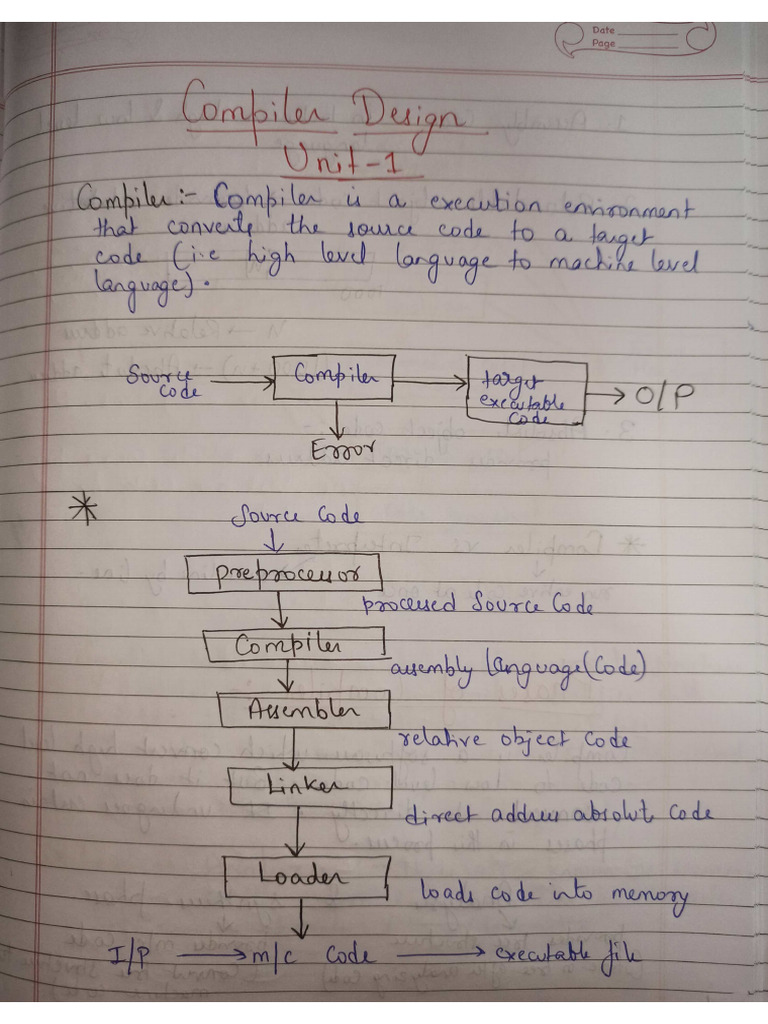 Date
Page
Compiler Design
Unit-1
Compiler:- Compiler is a execution environment
that converts the source code to a target
code (i.e high level language to machine level
language).
Source Code → Compiler → target executable code → O/P
Error
*
Source Code
Preprocessor
processed Source Code
Compiler
assembly language(Code)
Assembler
relative object code
Linker
direct address absolute code
Loader
loads code into memory
I/P → m/c code → executable file